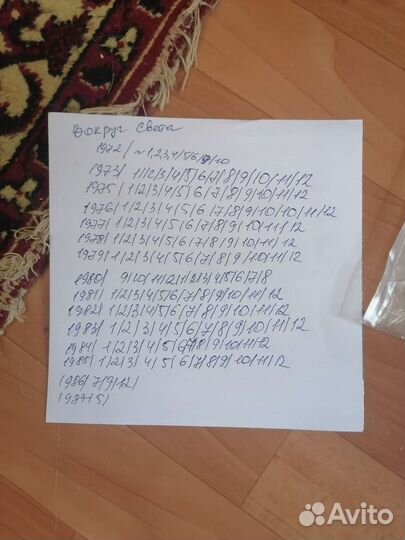 Вокруг Света
1972/ №1,2,3,4/5/6/7/9/10
1973/ 1/2/3/4/5/6/7/8/9/10/11/12
1975/ 1/2/3/4/5/6/7/8/9/10/11/12
1976/1/2/3/4/5/6/7/8/9/10/10/11/12
1977/1/2/3/4/5/6/7/8/9/10/11/12
1978/1/2/3/4/5/6/7/8/9/10/11/12
1979/1/2/3/4/5/6/7/8/9/10/11/12
1980/ 9/10/11/12/1/2/3/4/5/6/7/8
1981/ 1/2/3/4/5/6/7/8/9/10/11/12
1982/1/2/3/4/5/6/7/8/9/10/11/12
1983/ 1/2/3/4/5/6/7/8/9/10/11/12
1984/ 1/2/3/4/5/6/7/8/9/10/11/12
1985/ 1/2/3/4/5/6/7/8/9/10/11/12
1986/ 7/9/12/
1989/5/
Avito